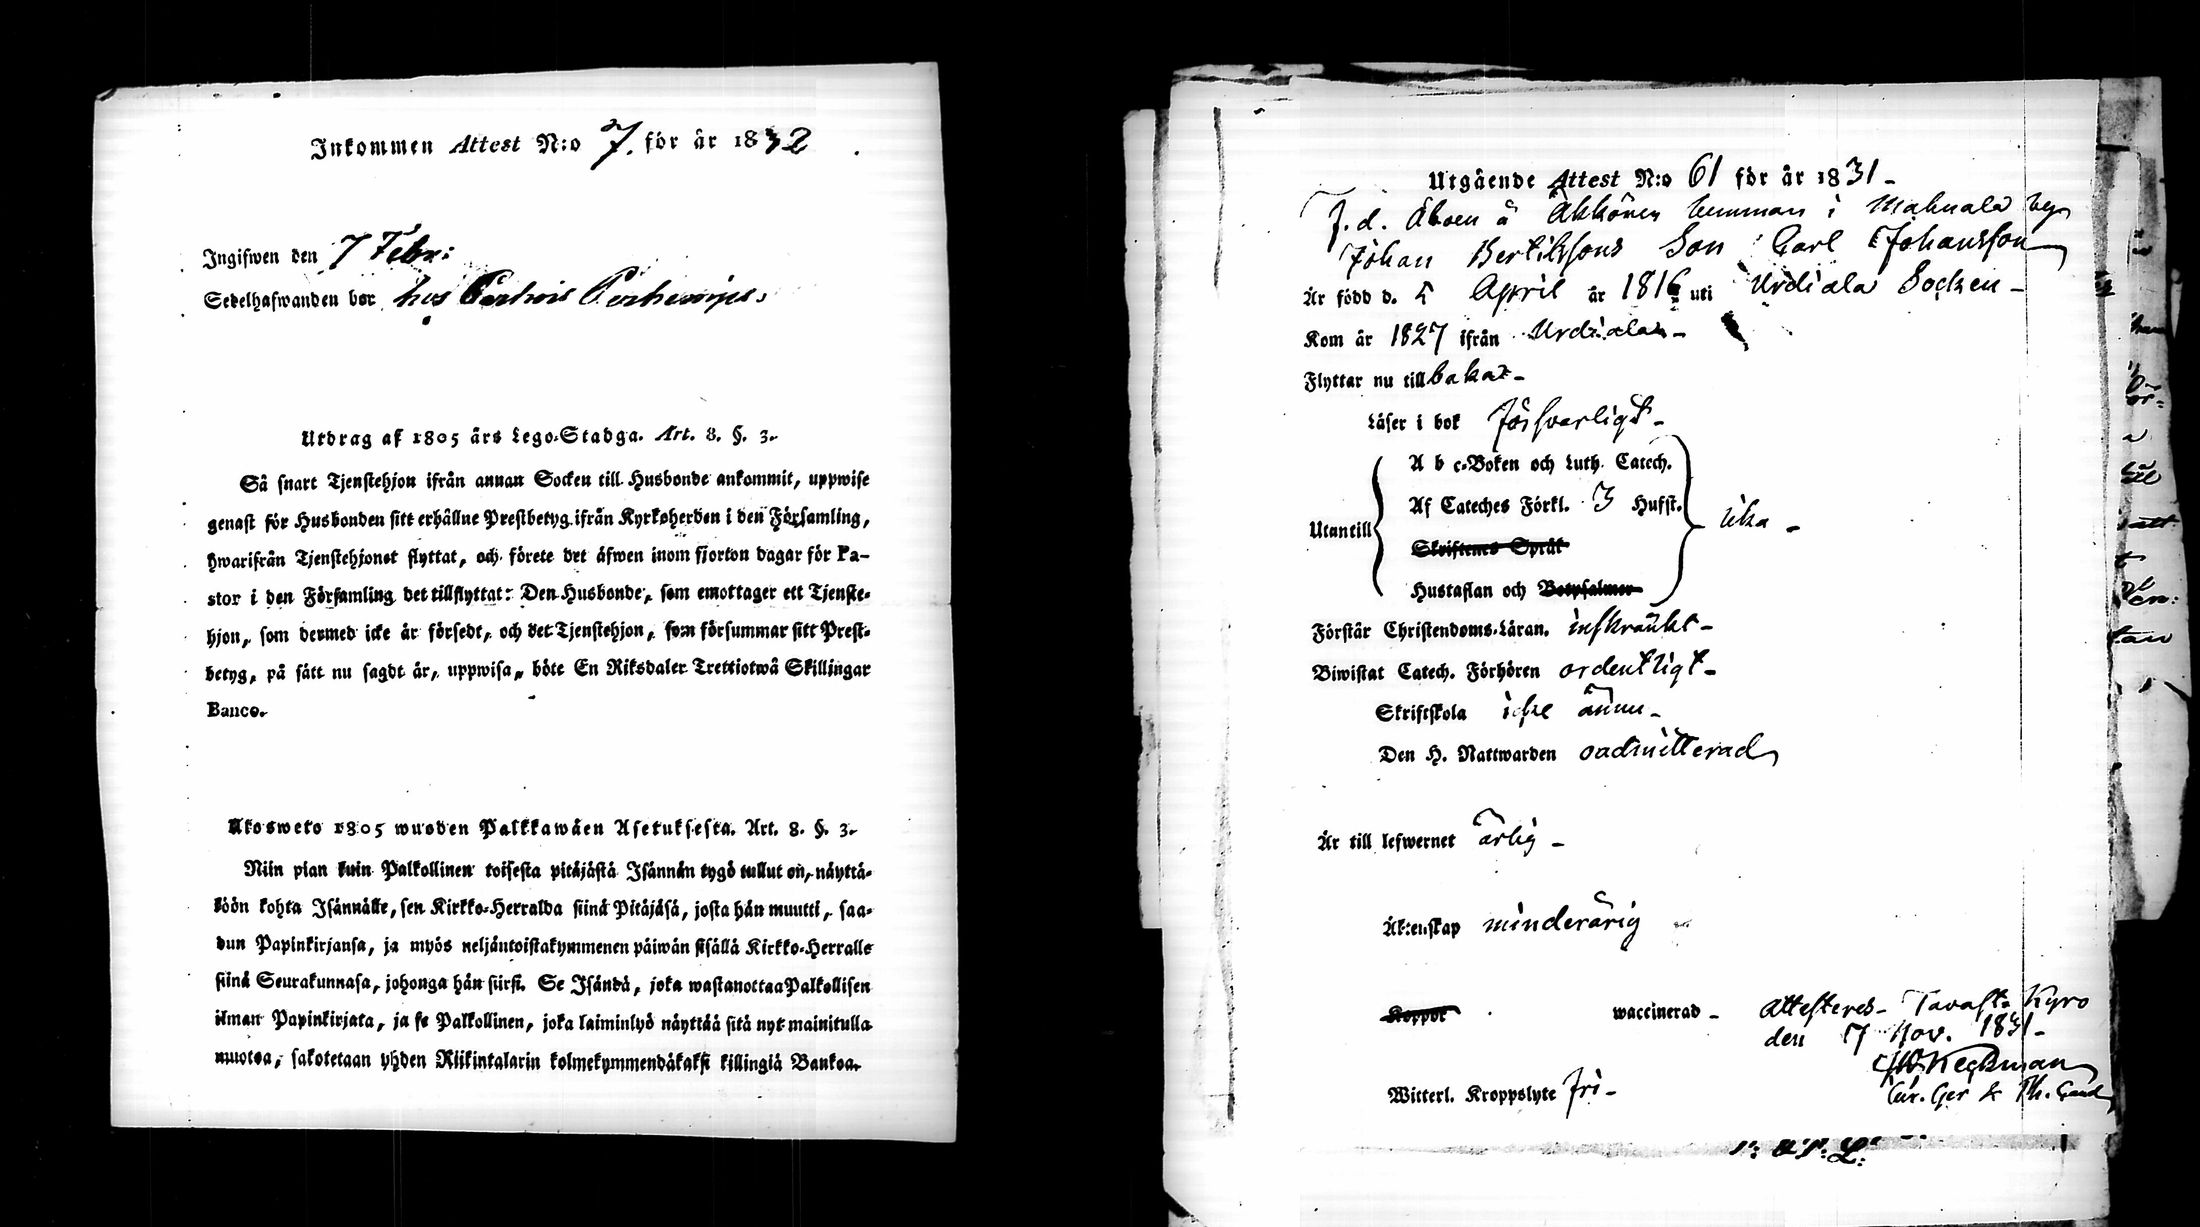 Inkommen Attest N:o 7. för år 1832
Ingifwen den 7 Febr:
Sedelhafwanden bor hos
Utdrag af 1805 års Lego-Stadga. Art. 8. §. 3.
Så snart Tjenstehjon ifrån annan Socken till Husbonde ankommit, uppwise
genast för Husbonden sitt erhållne Prestbetyg ifrån Kyrkoherden i den Församling,
hwarifrån Tjenstehjonet flyttat, och förete det äfwen inom fjorton dagar för Pa-
stor i den Församling det tillflyttat: Den Husbonde, som emottager ett Tjenste-
hjon, som dermed icke är försedt, och det Tjenstehjon, som försummar sitt Prest-
betyg, på sätt nu sagdt är, uppwisa, böte En Riksdaler Trettiotwå Skillingar
Banco.
Ulosweto 1805 wuoden Palkkawäen Asetuksesta. Art. 8. §. 3.
Niin pian kuin Palkollinen toisesta pitäjästä Isännän tygö tullut on, näyttä-
köön kohta Isännälle, sen Kirkko-Herralda siinä Pitäjäsä, josta hän muutti, saa-
dun Papinkirjansa, ja myös neljäntoistakymmenen päiwän sisällä Kirkko-Herralle
siinä Seurakunnasa, johonga hän siirsi. Se Isändä, joka wastanottaa Palkollisen
ilman Papinkirjata, ja se Palkollinen, joka laiminlyö näyttää sitä nyt mainitulla
muotoa, sakotetaan yhden Riikintalarin kolmekymmendäkaksi killingiä Bankoa.
Utgående Attest N:o 61 för år 1831 -
F. d. Åboen å hemman i Mahnala by
Johan Bertilssons Son Carl Johansson
År född d. 5 April år 1816 uti Urdiala Socken -
Kom år 1827 ifrån Urdiala -
Flyttar nu till bakat -
Läser i bok försvarligt -
A b c-Boken och Luth. Catech.
Af Cateches Förkl. 3 Hufst.
Utantill lika -
Skriftenes Språk
Hustaflan och Botpsalmer
Förstår Christendoms-Läran. inskränkt -
Biwistat Catech. Förhören ordentligt -
Skriftskola icke ännu -
Den H. Nattwarden oadmitterad
År till lefwernet ärlig -
Äktenskap minderårig
Koppor waccinerad - Attesteres - Tavast. Kyro
den 7 Nov. 1831 -
Witterl. Kroppslyte fri -